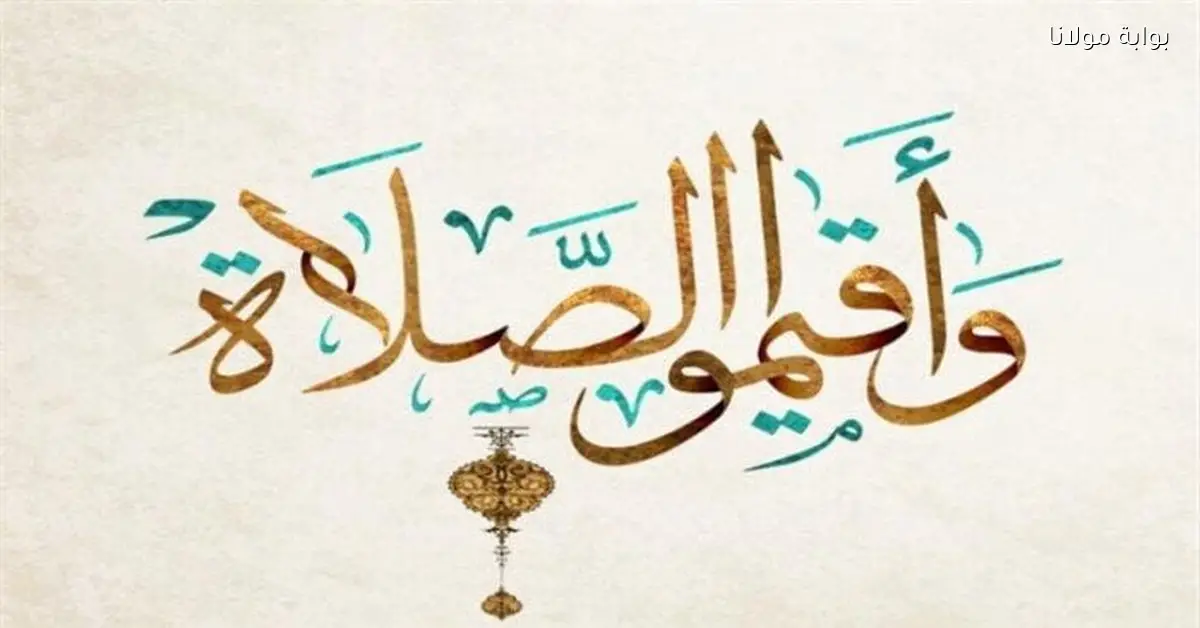 بوابة مولانا
وَأَقِيمُوا الصَّلَاةَ